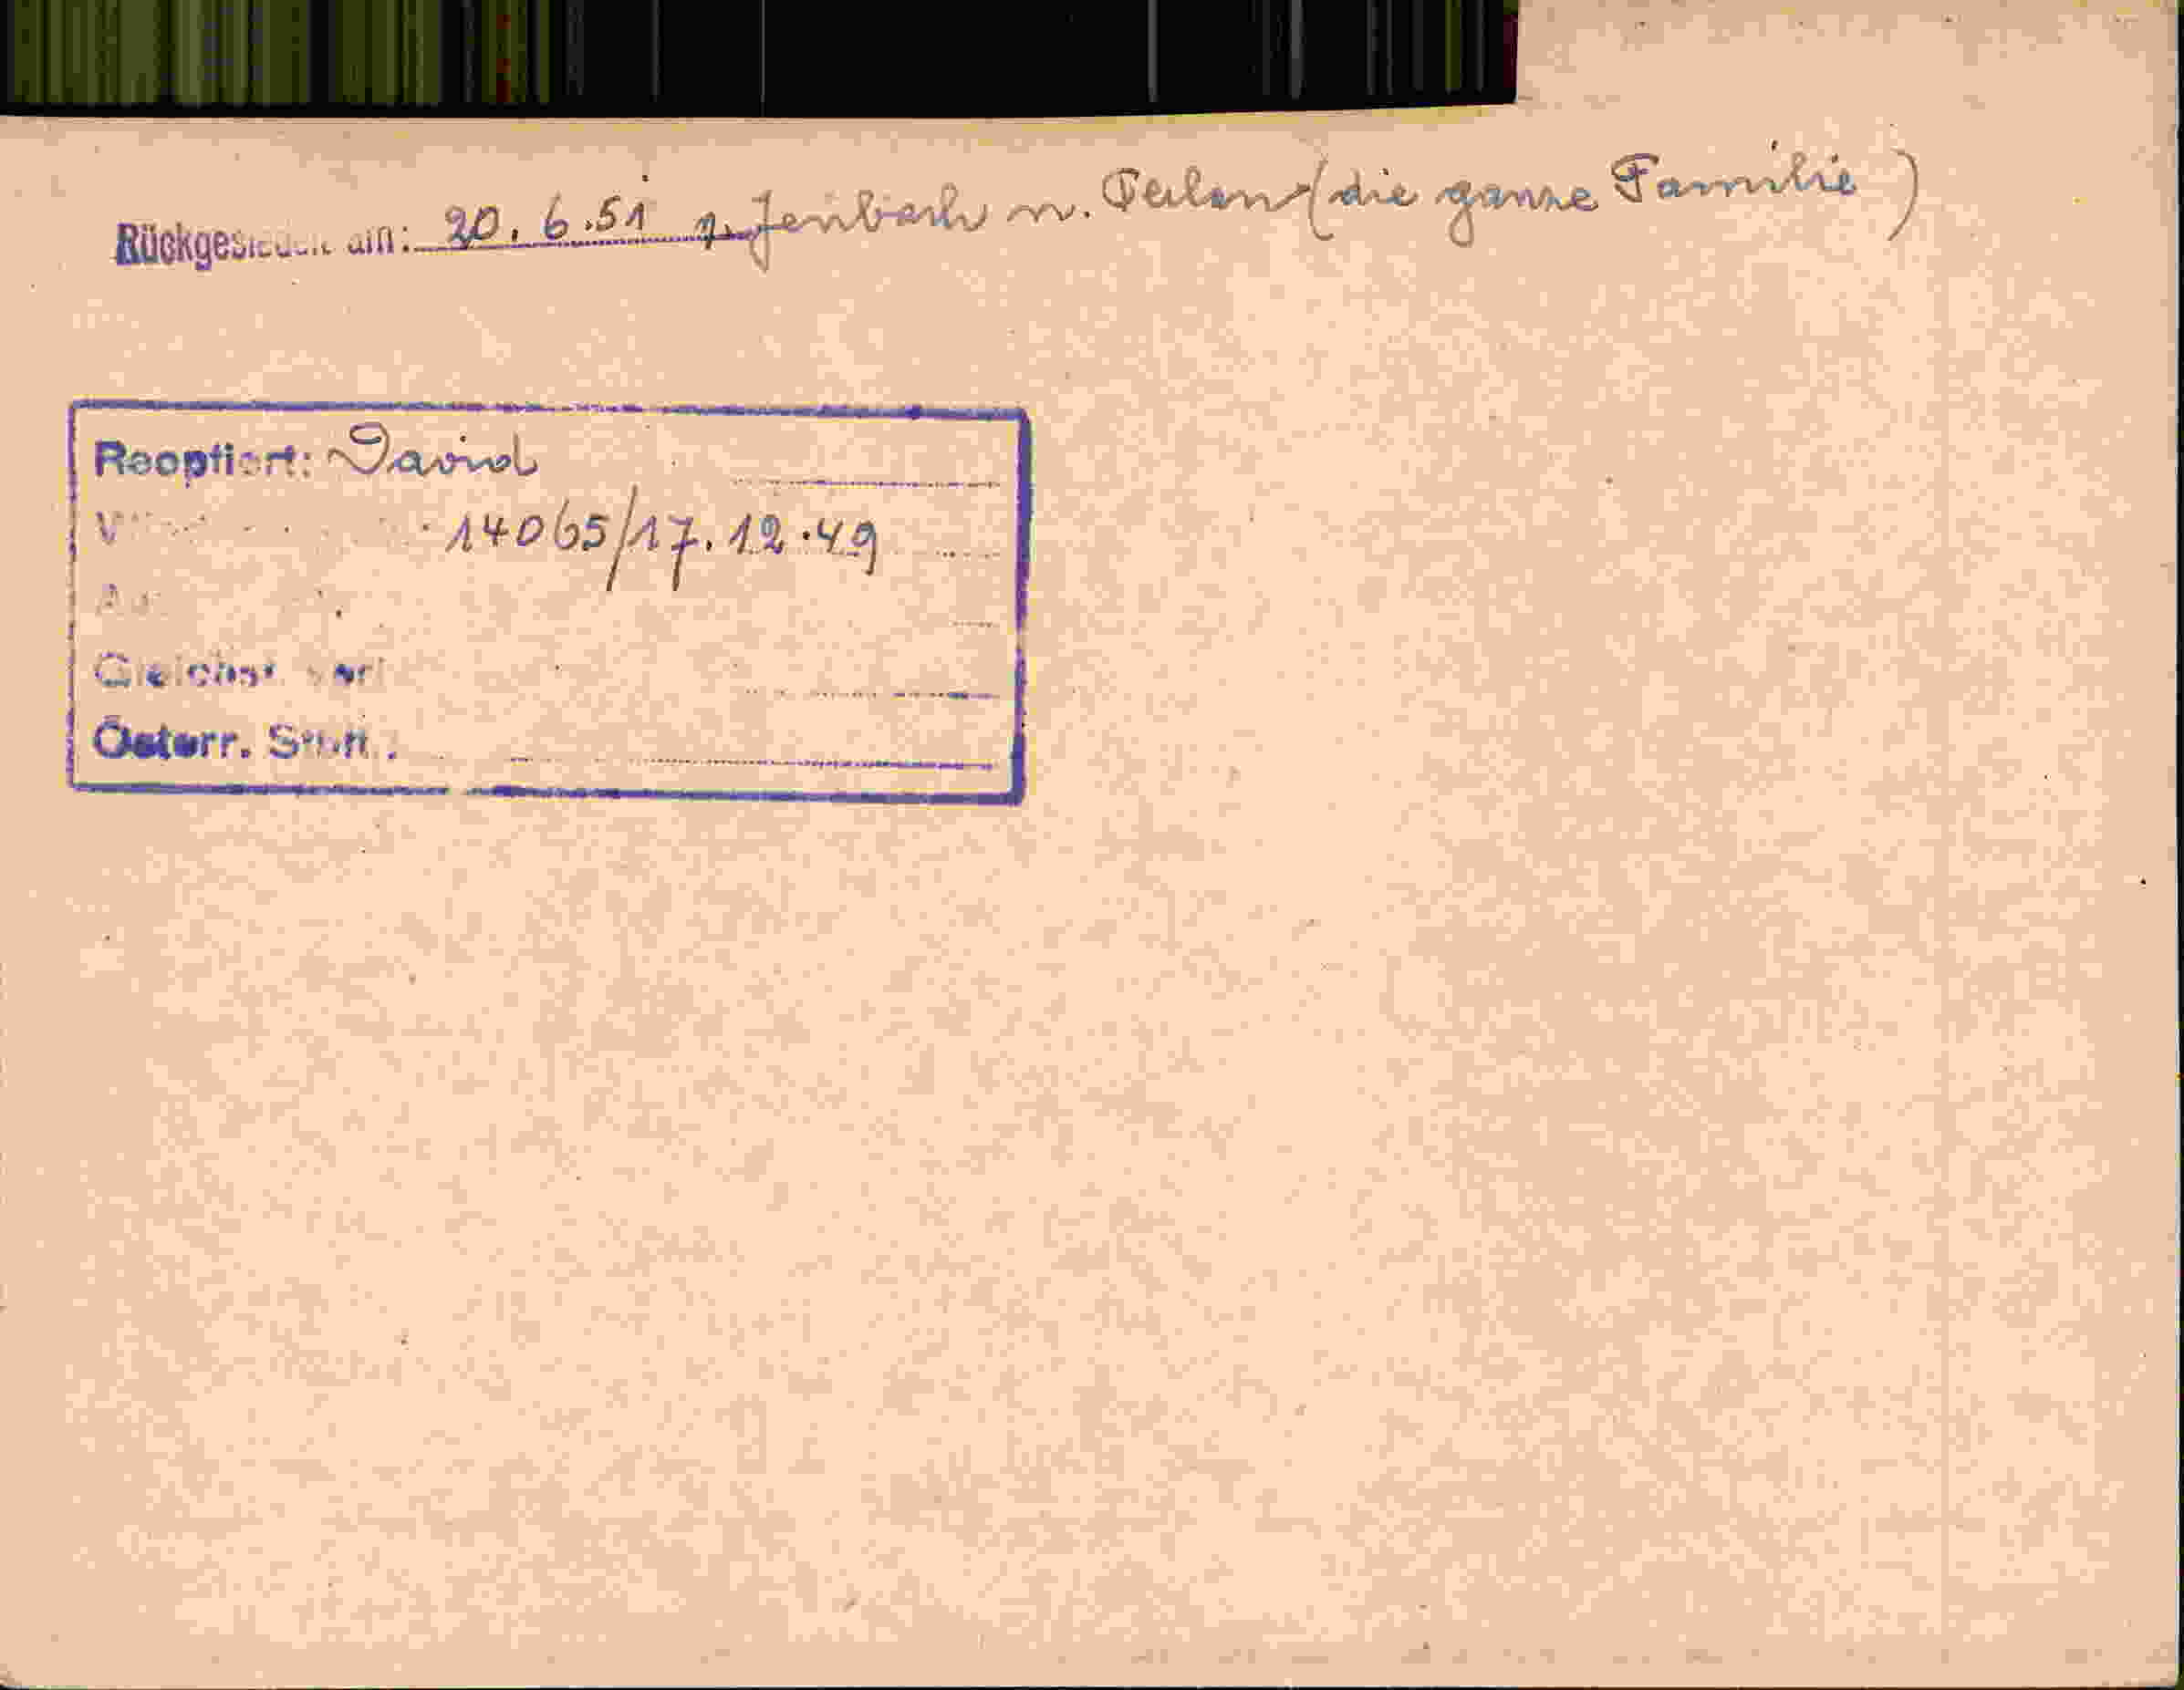 Rückgesiedelt am: 20. 6. 51 v. Jenbach n. Terlan (die ganze Familie)
Reoptiert: David
14065/17. 12. 49
Österr.